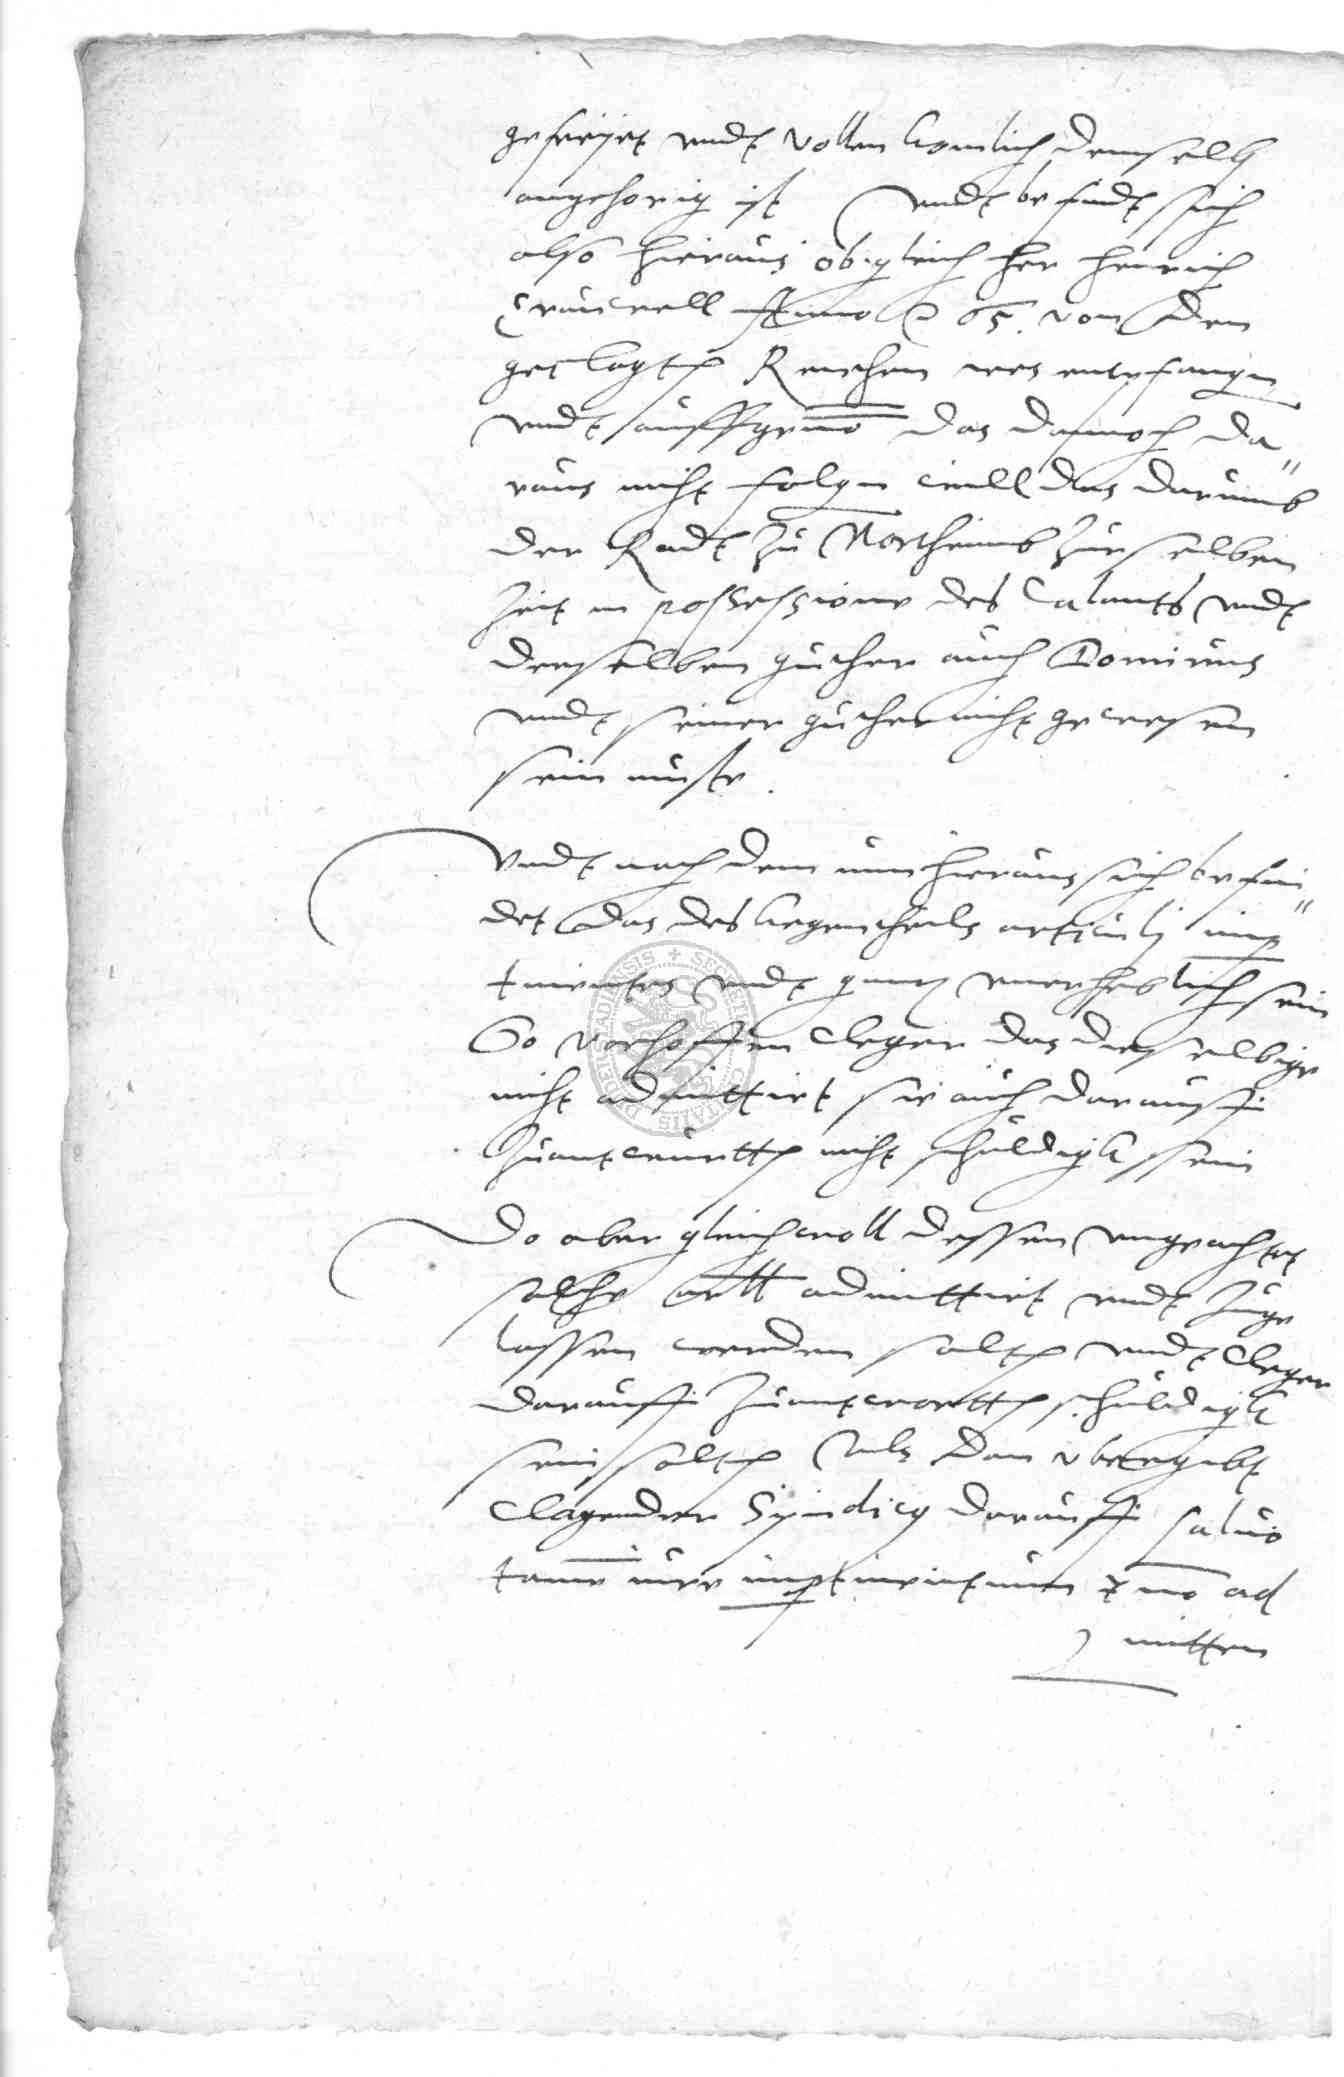 gefreyet undt vollenkomlich demselb
angehorig ist undt befindt sich
also hieraus obgleich her Henrich
Anno 65. von den
geclagten wes entpfangen
undt auffgeno das dannoch da"
raus nicht folgen will das darumb
der Radt zu Northeimb zur selben
Zeit in possessione des Calants undt
derselben guther auch Dominus
undt seiner guther nicht gewesen
sein muste.
Undt nach dem nun hieraus sich befin"
det das des kegentheils articuli imp
tinentes undt gantz unerheblich sein
So vorhoffen Cleger das dieselbige
nicht admittirt sie auch darauff
zuantwurtten nicht schuldigk sein
Do aber gleichwoll dessen ungeachtet
solche artt admittirt undt zuge
lassen werden solten undt Cleger
darauff zuantwortten schuldigk
sein solten Als dan ubergibt
Clagender Syndicg darauff salvo
tamen iure imptinentium et no ad
mitten
SECRETUM CIVITATIS DUDERSTADIENSIS